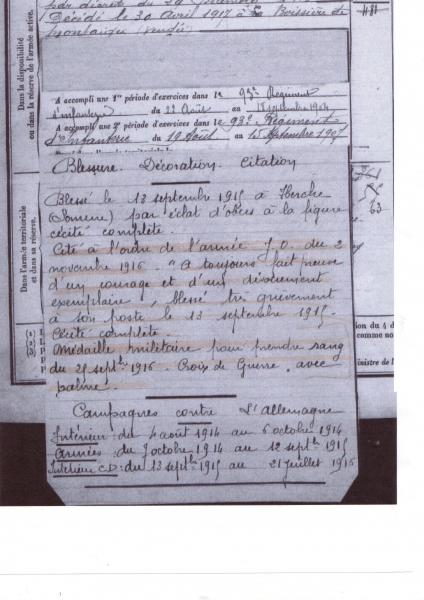 Décédé le 30 Avril 1917 à la Boissière de
Montaigu (Vendée)
Dans la disponibilité
ou dans la réserve de l'armée active.
A accompli une 1re période d'exercices dans le 93me Régiment
d'infanterie du 22 Août au 18 septembre 1904
A accompli une 2e période d'exercices dans le 93e Régiment
d'Infanterie du 19 Août au 15 Septembre 1907
Blessure. Décoration. Citation
Blessé le 13 septembre 1915 à Herche
(Somme) par éclat d'obus à la figure
cécité complète.
Cité à l'ordre de l'armée J.O. du 2
novembre 1916. "A toujours fait preuve
d'un courage et d'un dévouement
exemplaire, blessé très grièvement
à son poste le 13 septembre 1915.
Cécité complète.
Médaille militaire pour prendre rang
du 28 septbre 1916. Croix de Guerre. avec
palme.
Dans l'armée territoriale
et dans sa réserve.
63
(1)
(2)
(3)
ion du 4 d
comme no
inistre de l
Campagnes contre l'Allemagne
Intérieur: du 4 août 1914 au 6 octobre 1914
Armées: du 7 octobre 1914 au 12 septbre 1915
Intérieur CD: du 13 septbre 1915 au 21 juillet 1916